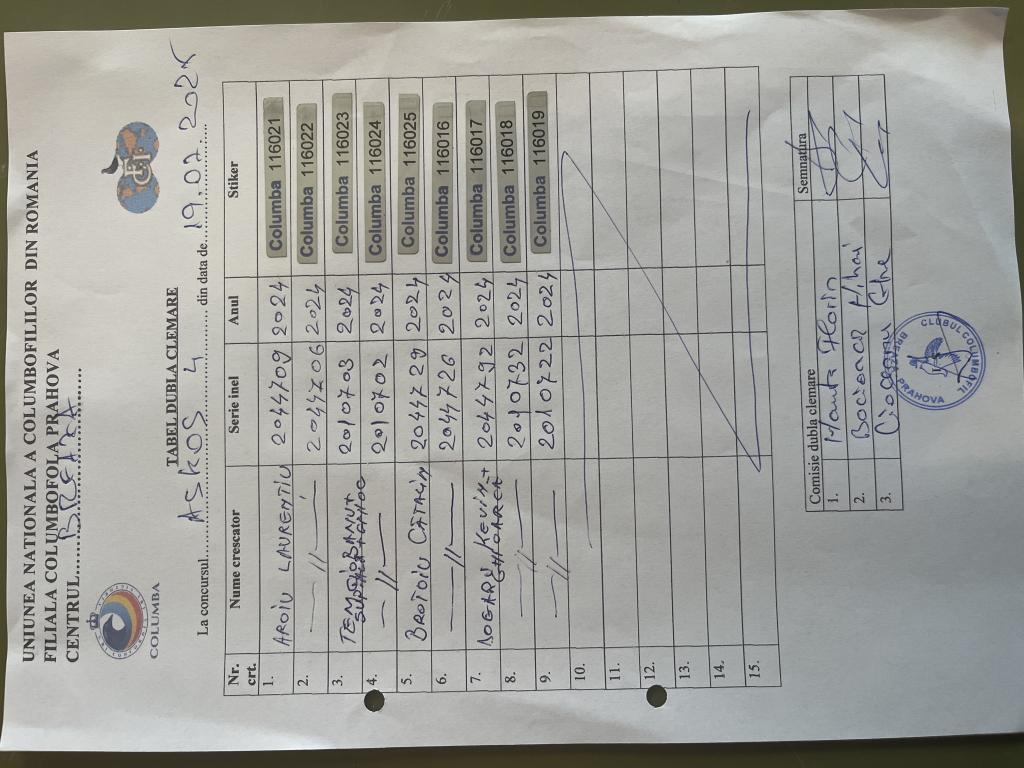 UNIUNEA NATIONALA A COLUMBOFILILOR DIN ROMANIA
FILIALA COLUMBOFOLA PRAHOVA
CENTRUL............BREAZA............
COLUMBA
FCI
TABEL DUBLA CLEMARE
La concursul............ASKOS 4............ din data de....19.07.2025
Nr. crt. Nume crescator Serie inel Anul Stiker
1. AROIU LAURENTIU 2044709 2024 Columba 116021
2. —//— 2044706 2024 Columba 116022
3. 2010703 2024 Columba 116023
4. —//— 2010702 2024 Columba 116024
5. BROTOIU CĂTĂLIN 2044729 2024 Columba 116025
6. —//— 2044726 2024 Columba 116016
7. KEVIN + GHIOARCA 2044792 2024 Columba 116017
8. —//— 2010732 2024 Columba 116018
9. —//— 2010722 2024 Columba 116019
10.
11.
12.
13.
14.
15.
Comisie dubla clemare Semnatura
1. Manta Florin
2. Mihai
3. Ghe
CLUBUL COLUMBOFIL BREAZA PRAHOVA